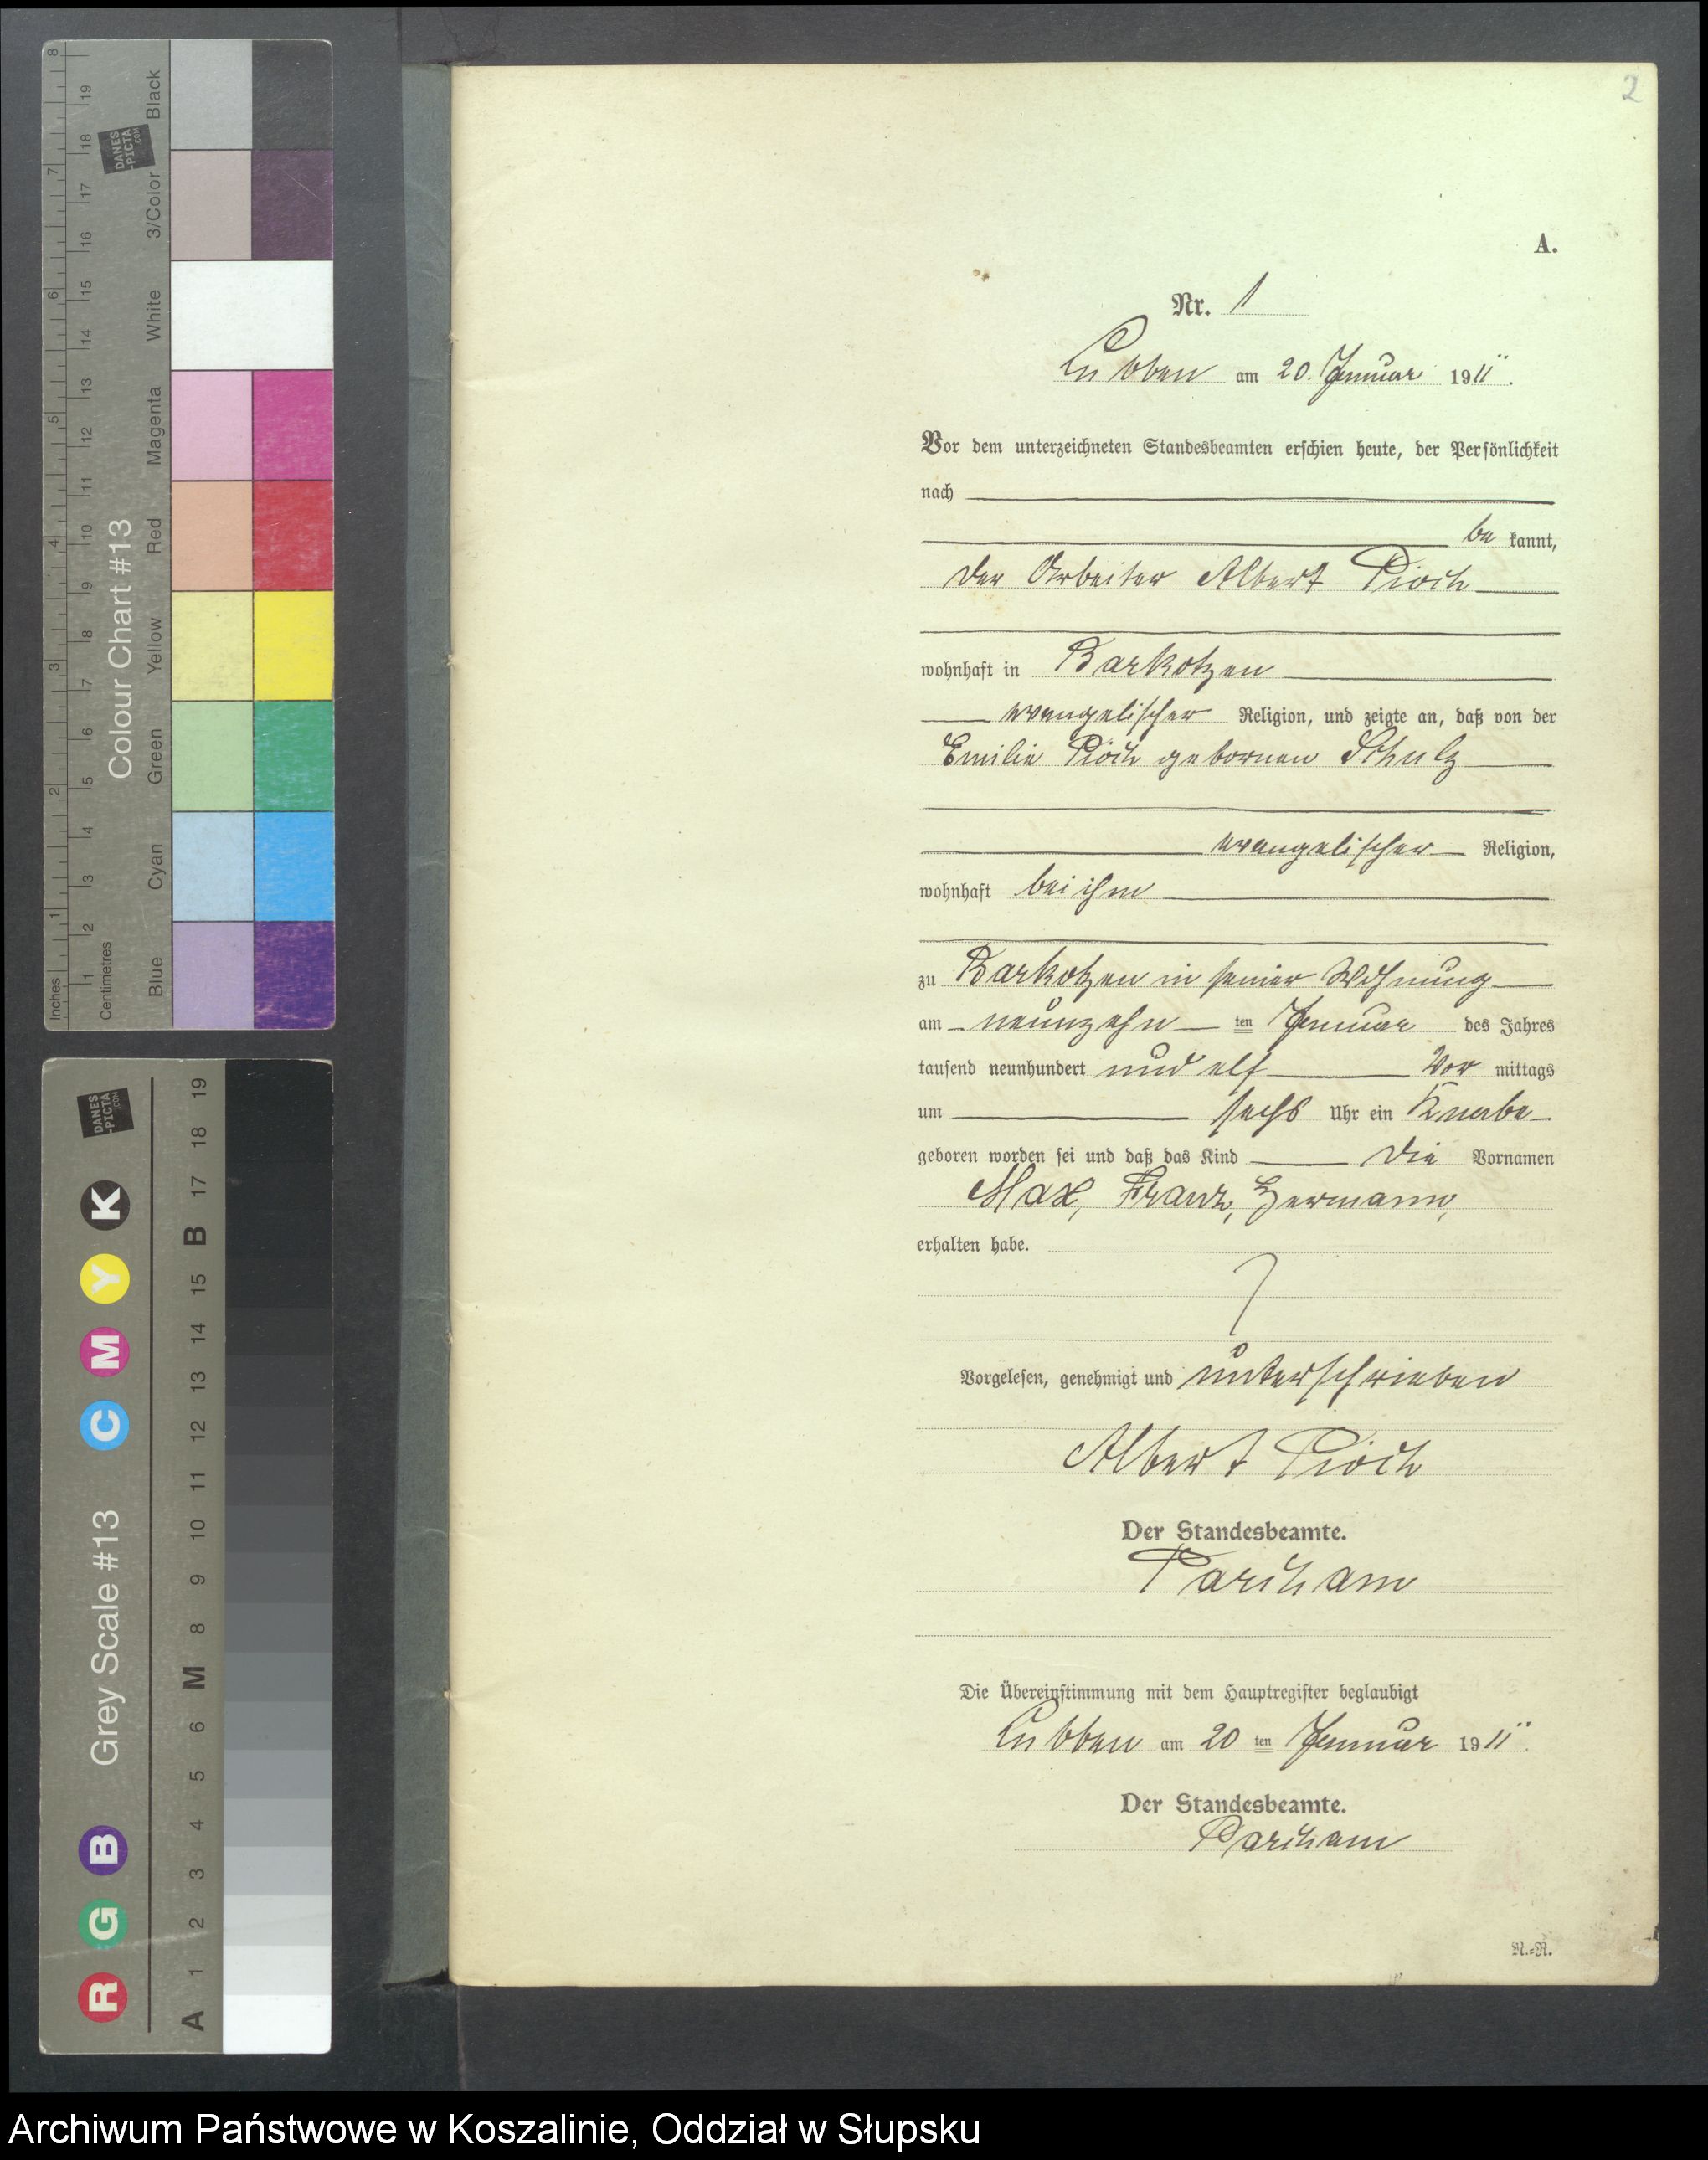 2
A.
Nr. 1
Lubben am 20. Januar 1911.
Vor dem unterzeichneten Standesbeamten erschien heute, der Persönlichkeit
nach
be kannt,
der Arbeiter Albert Pioch
wohnhaft in Barkotzen
evangelischer Religion, und zeigte an, daß von der
Emilie Pioch gebornen Schulz
evangelischer Religion,
wohnhaft bei ihm
zu Barkotzen in seiner Wohnung
am neunzehn ten Januar des Jahres
tausend neunhundert und elf Vor mittags
um sechs Uhr ein Knabe
geboren worden sei und daß das Kind die Vornamen
Max, Franz, Hermann,
erhalten habe.
Vorgelesen, genehmigt und unterschrieben
Albert Pioch
Der Standesbeamte.
Parcham
Die Übereinstimmung mit dem Hauptregister beglaubigt
Lubben am 20 ten Januar 1911.
Der Standesbeamte.
Parcham
N.=N.
Colour Chart #13
Blue Cyan Green Yellow Red Magenta White 3/Color Black
Inches 1 2 3 4 5 6 7 8
Centimetres 1 2 3 4 5 6 7 8 9 10 11 12 13 14 15 16 17 18 19
DANES
-PICTA
.COM
Grey Scale #13
R G B C M Y K
A 1 2 3 4 5 6 M 8 9 10 11 12 13 14 15 B 17 18 19
DANES
-PICTA
.COM
Archiwum Państwowe w Koszalinie, Oddział w Słupsku